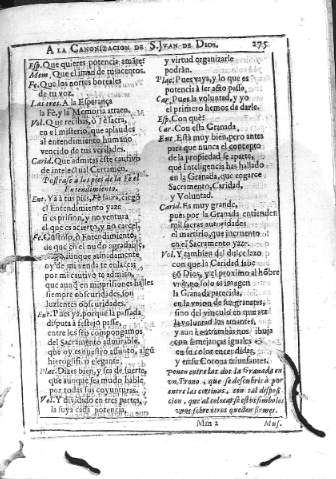 A LA CANONIZACION DE S. IVAN DE DIOS. 275
Esp. Que quieres potencia amàtes
Mem. Que el iman de
Fe. Que los nortes boreales
de tu voz.
Las tres. A la Esperança
la Fè, y la Memoria atraen.
Vol. Que recibas, ò Fè sacra,
en el misterio, que aplaudes
al entendimiento humano
vencido de tus verdades.
Carid. Que admitas este cautivo
de intelectual Certamen.
Postrase à los pies de la Fè el
Entendimiento.
Ent. Yà à tus pies, Fè sacra, ciego
el Entendimiento yaze
si es prision, y no ventura
el que es acierto, y no carcel.
Fe. ò Entendimiento,
de que en el nudo agradable,
aunque
oy de mi venda te enlaces,
por mi cautivo te admito,
que aunque en mis prisiones halles
siempre obscuridades, son
luzes las obscuridades.
Ent. Pues yà, porque la passada
disputa à festejo passe,
entre los seis compongamos
del Sacramento admirable,
que oy es nuestro assunto, algũ
hieroglifico elegante.
Plac. Dizes bien, y sea de suerte,
que aunque sea mudo hable,
por todas sus coyunturas.
Vol. Y dividido en tres partes,
la suya cada potencia,
y virtud organizarle
podràn.
Plac. Pues vaya, y lo que es
potencia à ser acto passe,
Car. Pues la voluntad, y yo
el primero hemos de darle.
Esp. Con què?
Car. Con esta Granada,
Ent. Està muy bien, pero antes
para que nunca el concepto
de la propiedad se aparte,
què inteligencia has hallado
en la Granada, que engarce
Sacramento, Caridad,
y Voluntad.
Carid. Es muy grande,
pues por la Granada entienden
mil sacras autoridades
el martirio, que incruento
en el Sacramento yaze.
Vol. Y tambien del dulce lazo
con que la Caridad sabe
à Dios, y el proximo al hõbre
vnir, no solo es imagen
la Granada parecida,
en la vnion de sus granates,
sino del vinculo en que ata
la voluntad los amantes,
y aun
con semejanças iguales
en su color encendidas,
y en su Corona triunfantes.
ponen entrambas la Granada en
vn Trono, que se descubrirà por
entre las cortinas, con tal disposi-
cion, que al colocar se estos simbolos
vnos sobre otros queden firmes.
Mm 2 Mus.